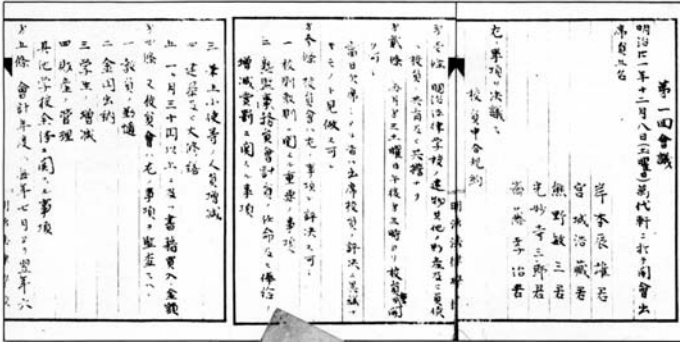 第一回會議
明治廿一年十二月八日(土曜日)萬代軒ニ於テ開會出
席員五名
岸本辰雄君
宮城浩藏君
熊野敏三君
光妙寺三郎君
齋藤孝治君
左ノ事項ヲ決議ス
校員申合規約
第壱條 明治法律學校ノ建物其他ノ財産及ヒ負債
ハ校員ノ共有及ヒ共擔トス
第貳條 毎月第三土曜日午後三時ヨリ校員會ヲ開
ク可シ
當日欠席シタル者ハ出席校員ノ評決ニ異議ナ
キモノト見做ス可シ
第參條 校員會ハ左ノ事項ヲ評決ス可シ
一 校則教則ニ關スル重要ノ事項
二 熟監事務員會計員ノ任命及ヒ俸給ノ
増減賞罰ニ關スル事項
三 筆工小使等ノ人員増減
四 建築及ヒ大修繕
五 一ヶ月三十円以上ニ及フ書籍買入ノ金額
第四條 又校員會ハ左ノ事項ヲ監査スヘシ
一 教員ノ勤惰
二 金円出納
三 学生ノ増減
四 財産ノ管理
其他学校全体ニ關スル事項
第五條 會計年度ハ毎年七月ヨリ翌年六
明治法律學校
明治法律學校